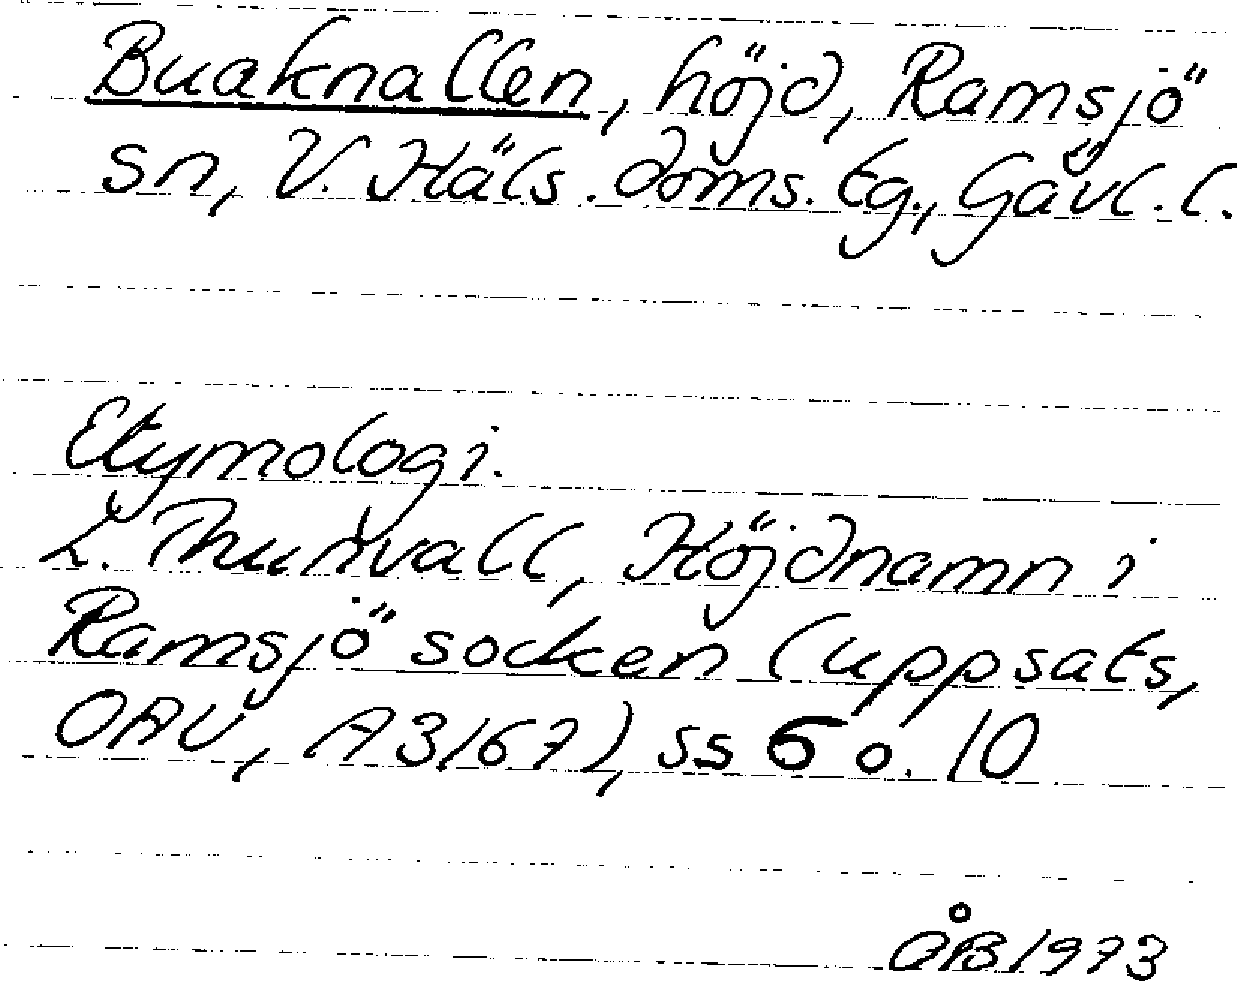 Buaknallen, höjd, Ramsjö
sn, V. Häls. doms. tg., Gävl. l.
Etymologi.
L. Thunvall, Höjdnamn i
Ramsjö socken (uppsats,
OAU, A3167), ss 6 o. 10
ÅB 1973